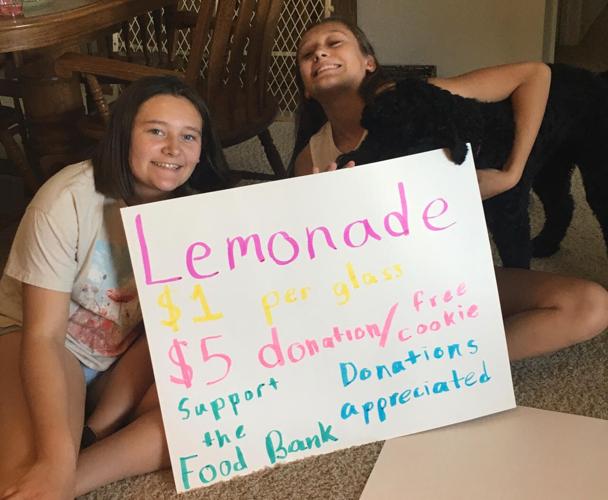 Lemonade
$1 per glass
$5 donation/free cookie
Support the Food Bank
Donations appreciated